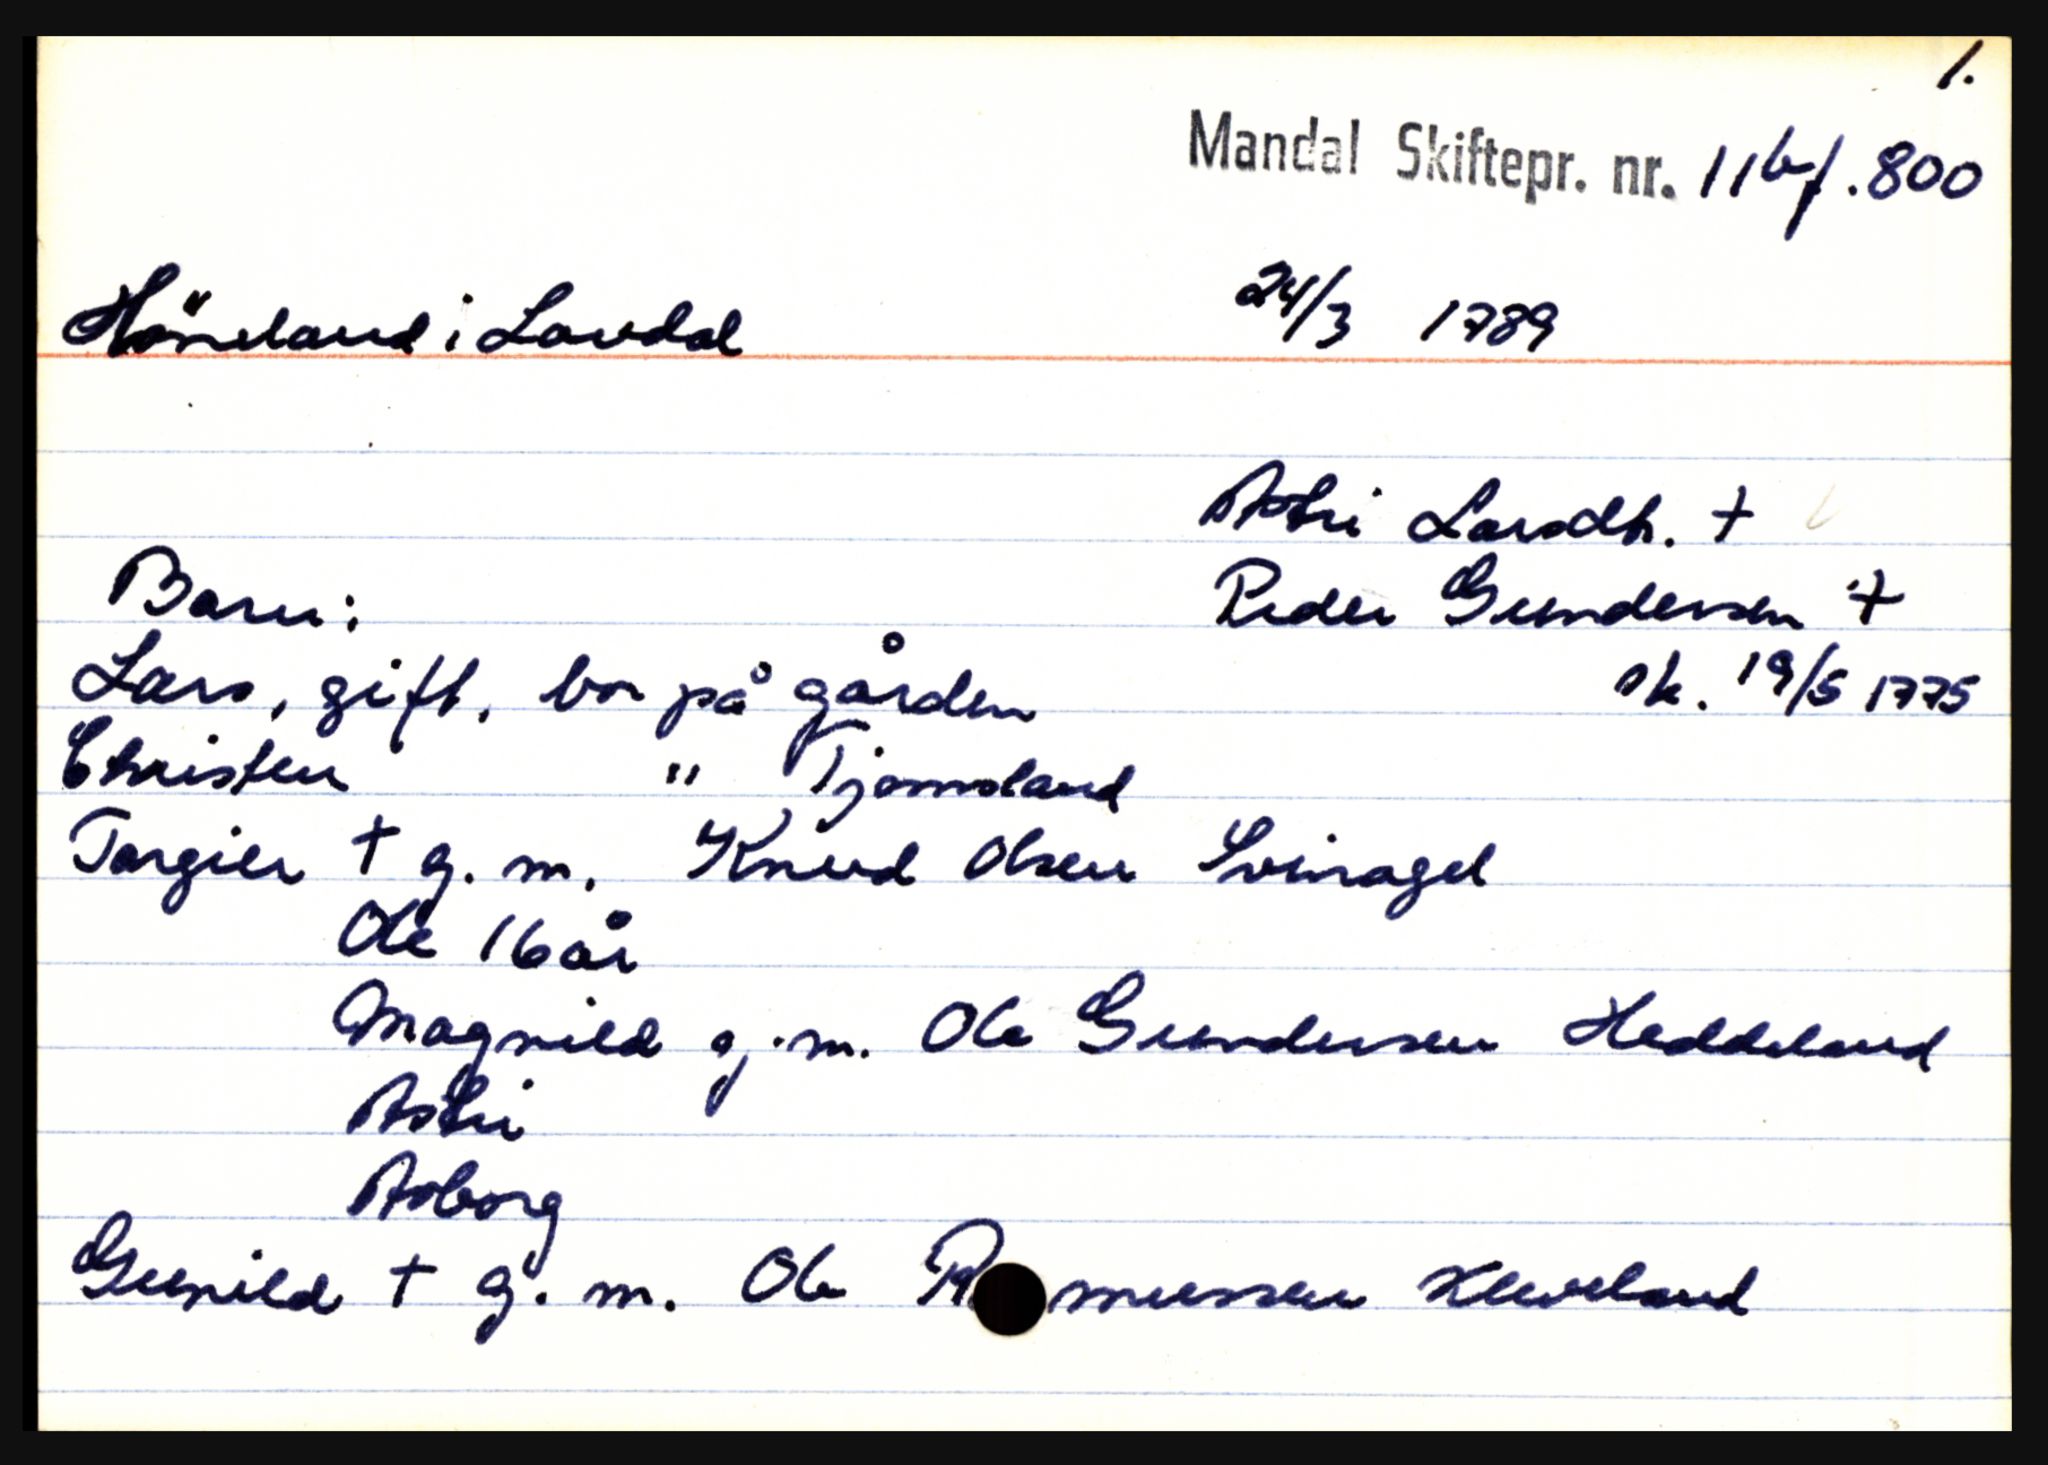 1.
Mandal Skiftepr. nr. 11b f. 800
Höneland i Laudal 24/3 1789
Astri Larsdtr. †
Barn: Peder Gundersen †
Lars, gift, bor på gården sk. 19/5 1775
Christen " Tjomsland
Torgier † g. m. Knud Olsen Svinagel
Ole 16 år
Magnild g. m. Ole Gundersen Heddeland
Astri
Asborg
Gunild † g. m. Ole R mussen Kleveland